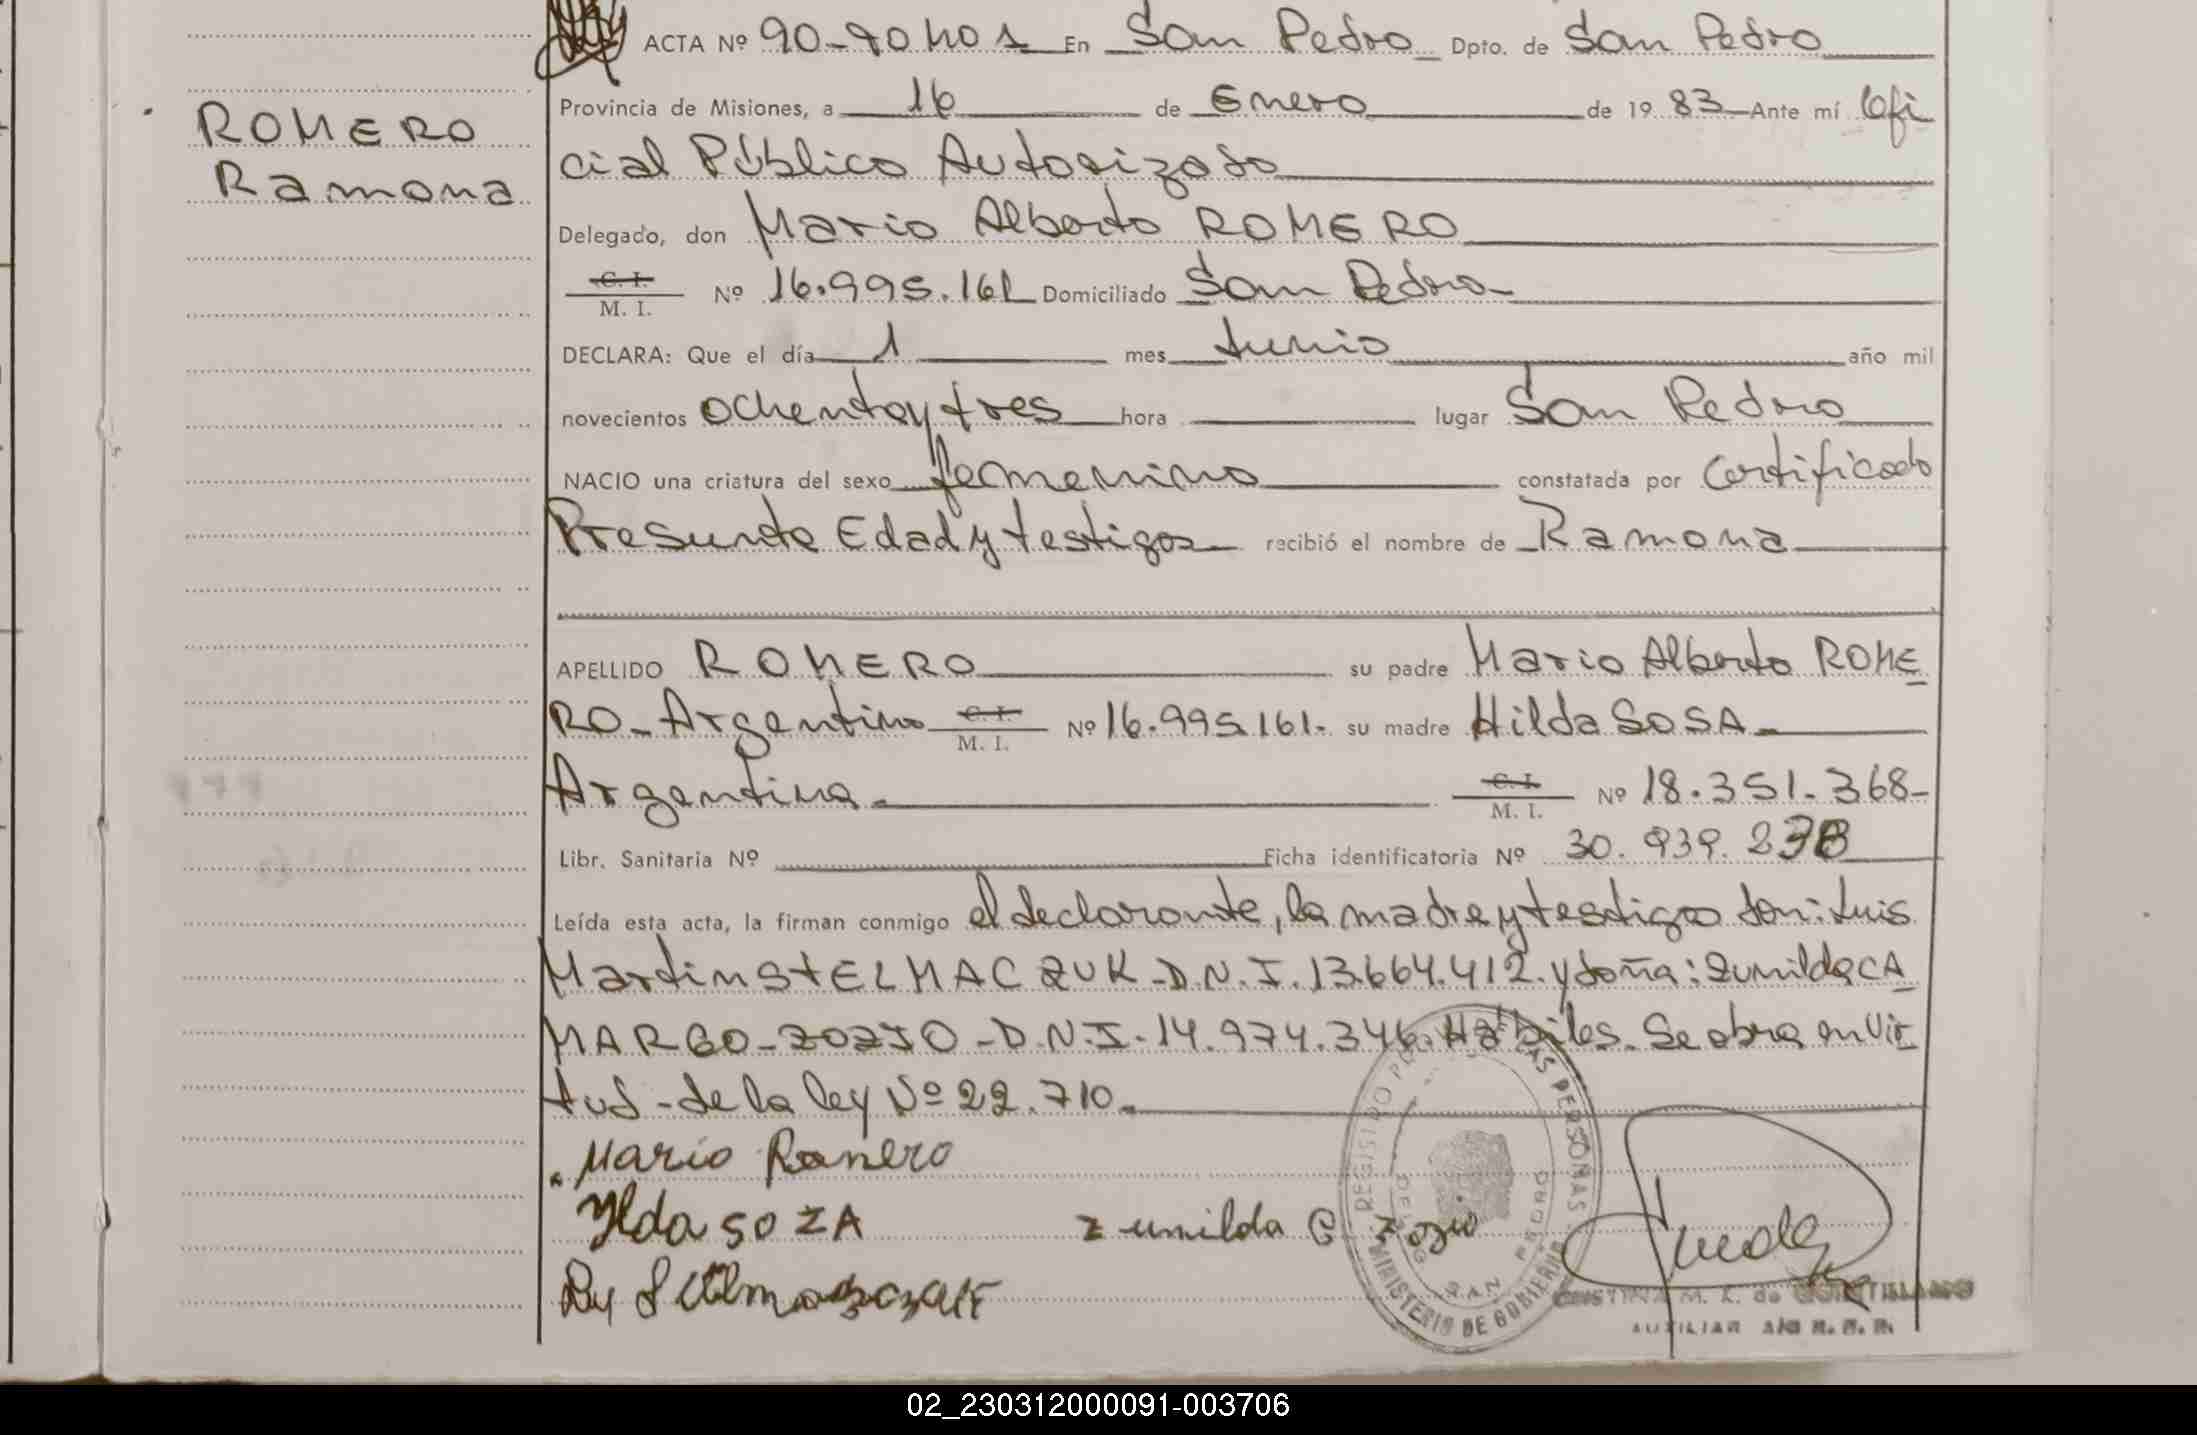 ACTA Nº 90-90 En San Pedro Dpto. de San Pedro
ROMERO
Ramona
Provincia de Misiones, a 16 de Enero de 19 83 Ante mí Ofi
cial Público Autorizado
Delegado, don Mario Alberto ROMERO
C. I.
M. I. Nº 16.995.161 Domiciliado San Pedro
DECLARA: Que el día 1 mes Junio año mil
novecientos ochenta y tres hora lugar San Pedro
NACIO una criatura del sexo femenino constatada por Certificado
Presunta Edad y testigos recibió el nombre de Ramona
APELLIDO ROMERO su padre Mario Alberto ROME
RO - Argentino C. I. M. I. Nº 16.995.161- su madre Hilda SOSA
Argentina. C. I. M. I. Nº 18.351.368-
Libr. Sanitaria Nº Ficha identificatoria Nº 30.939.2
Leída esta acta, la firman conmigo el declarante, la madre y testigos don: Luis
Martin StELMACZUK - D.N.I. 13.664.412. y doña: Zunilda CA
MARGO - ZOZJO - D.N.I. 14.974.346. Hábiles. Se obra en vir
tud - de la ley Nº 22.710.
Mario Romero
Ylda SOZA Zunilda C
REGISTRO PERSONAS
DELEG. SAN PEDRO
MINISTERIO DE GOBIERNO
CRISTINA M. L. de
AUXILIAR
02_230312000091-003706